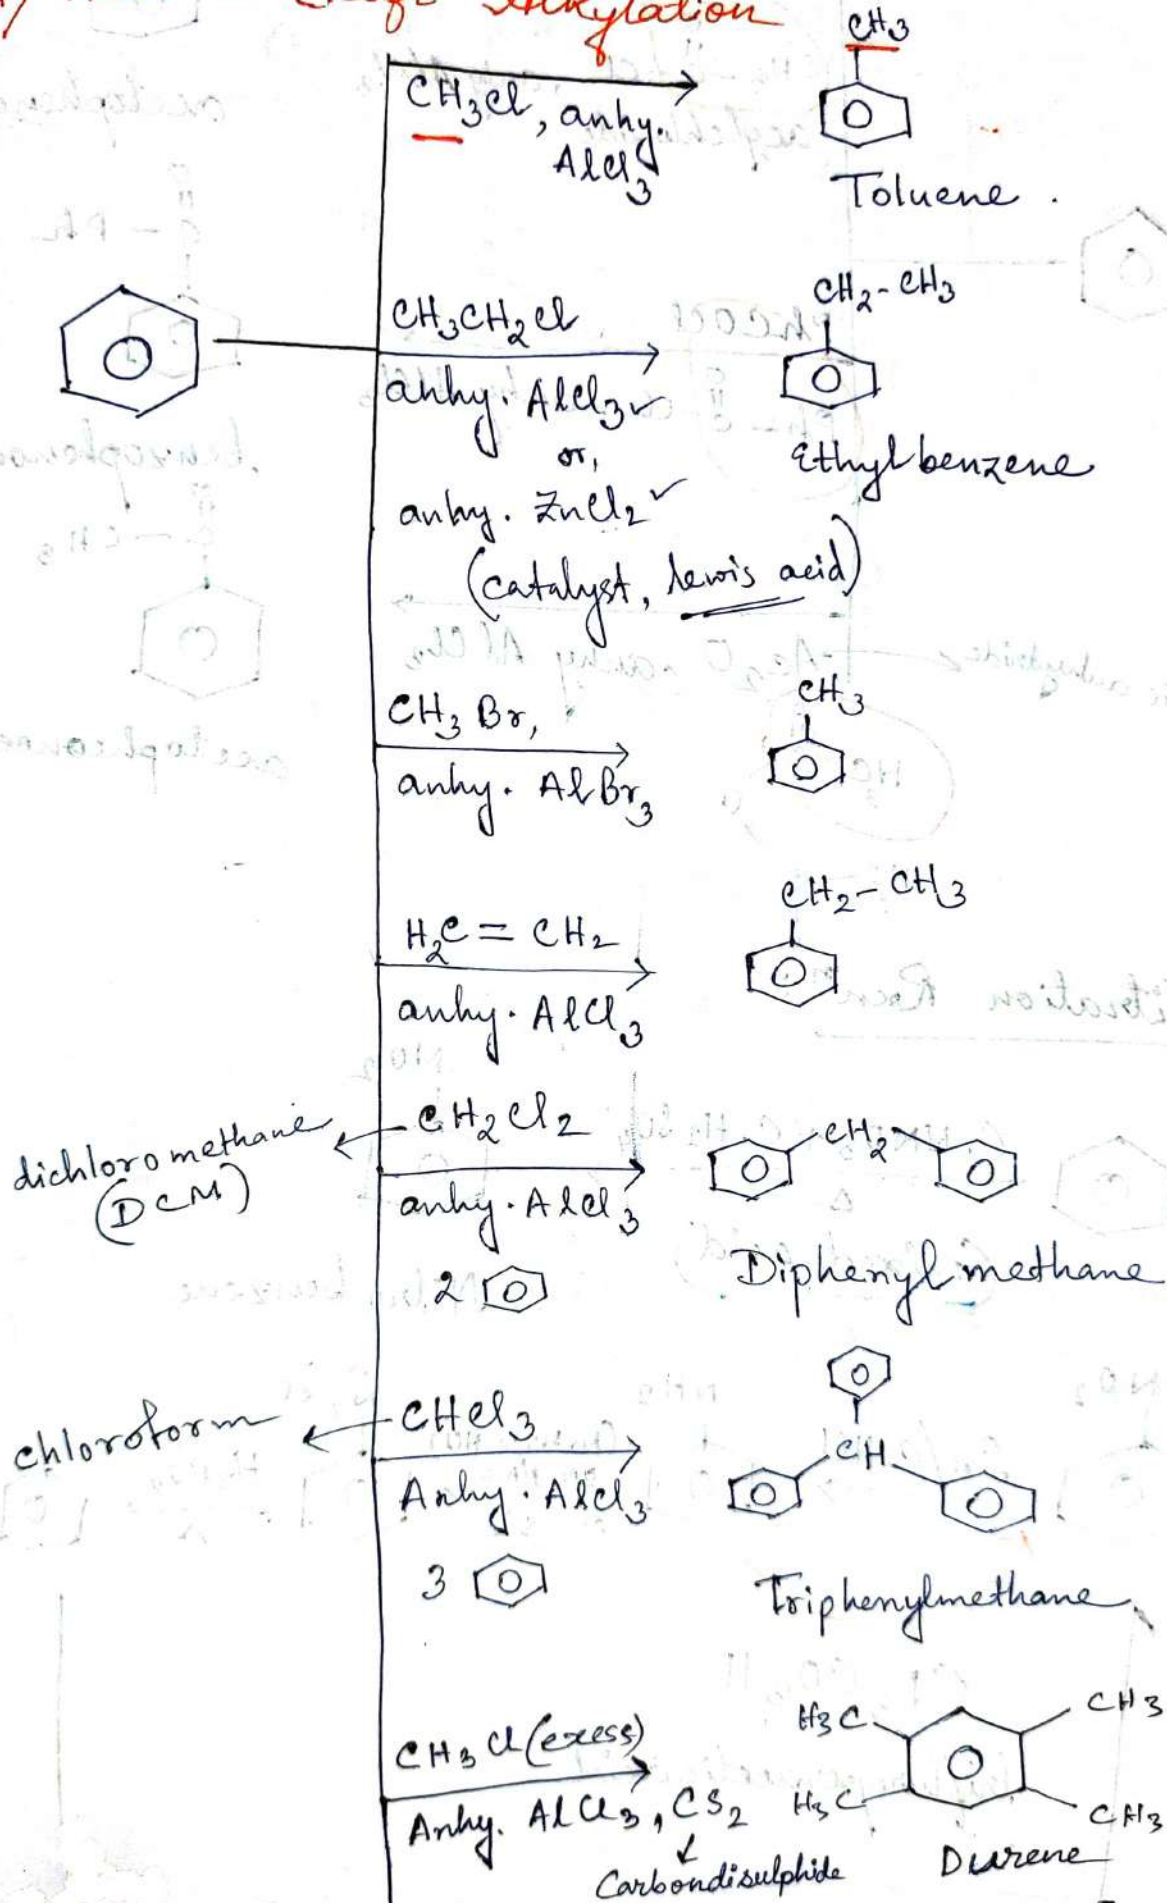 Alkylation
CH3Cl, anhy.
AlCl3
CH3
Toluene.
CH3CH2Cl
anhy. AlCl3 ✓
or,
anhy. ZnCl2 ✓
(catalyst, lewis acid)
CH2-CH3
Ethylbenzene
CH3Br,
anhy. AlBr3
CH3
H2C=CH2
anhy. AlCl3
CH2-CH3
dichloromethane
(DCM)
CH2Cl2
anhy. AlCl3
2
CH2
Diphenylmethane
chloroform
CHCl3
Anhy. AlCl3
3
CH
Triphenylmethane
CH3Cl (exess)
Anhy. AlCl3, CS2
Carbondisulphide
H3C
CH3
H3C
CH3
Durene